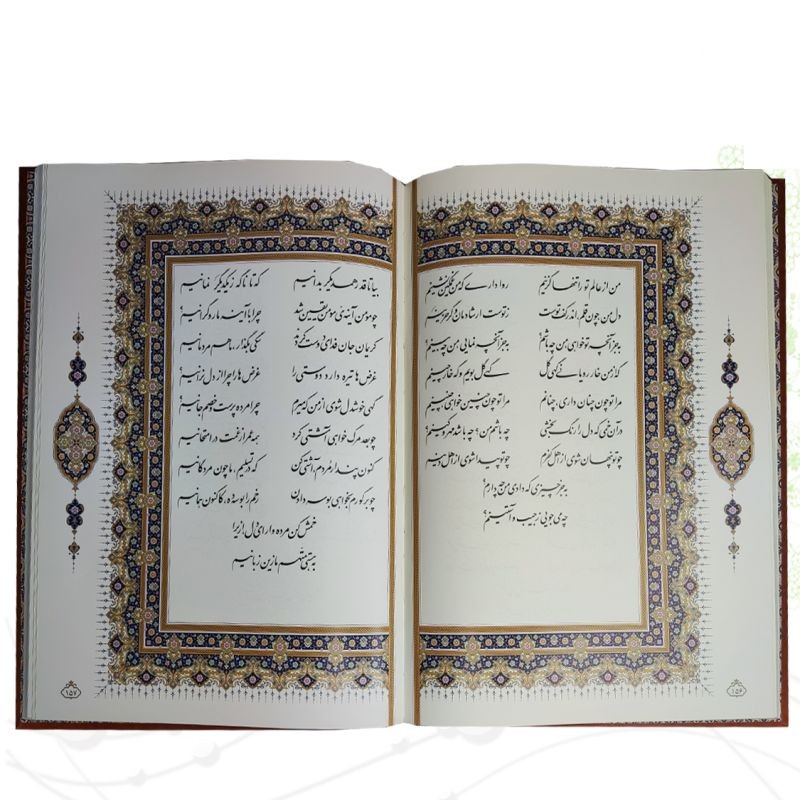 من از عالم تو را تنها گزینم روا داری که من غمگین نشینم؟
دل من چون قلم، اندر کف توست ز توست ار شادمان و گر حزینم
به جز آنچه تو خواهی من چه باشم؟ به جز آنچه نمایی من چه بینم؟
گه از من خار رویانی گهی گل گهی گل بویم و گه خار چینم
مرا تو چون چنان داری، چنانم مرا تو چون چنین خواهی، چنینم
در آن خمی که دل را رنگ بخشی چه باشم من؟ چه باشد مهر و کینم؟
چو تو پنهان شوی از اهل کفرم چو تو پیدا شوی از اهل دینم
به جز چیزی که دادی من چه دارم؟
چه می جویی ز جیب و آستینم؟
۱۵۶
بیا تا قدر همدیگر بدانیم که تا ناگه ز یکدیگر نمانیم
چو مؤمن آینه‌ی مؤمن یقین شد چرا با آینه ما رو گرانیم؟
کریمان جان فدای دوست کردند سگی بگذار، ما هم مردمانیم
غرض ها تیره دارد دوستی را غرض ها را چرا از دل نرانیم؟
گهی خوشدل شوی از من که میرم چرا مرده پرست و خصم جانیم؟
چو بعد مرگ خواهی آشتی کرد همه عمر از غمت در امتحانیم
کنون پندار مُردم، آشتی کن که در تسلیم، ما چون مردگانیم
چو بر گورم بخواهی بوسه دادن رخم را بوسه ده، کاکنون همانیم
خمش کن مرده وار ای دل، ازیرا
به هستی متهم ما زین زبانیم
۱۵۷